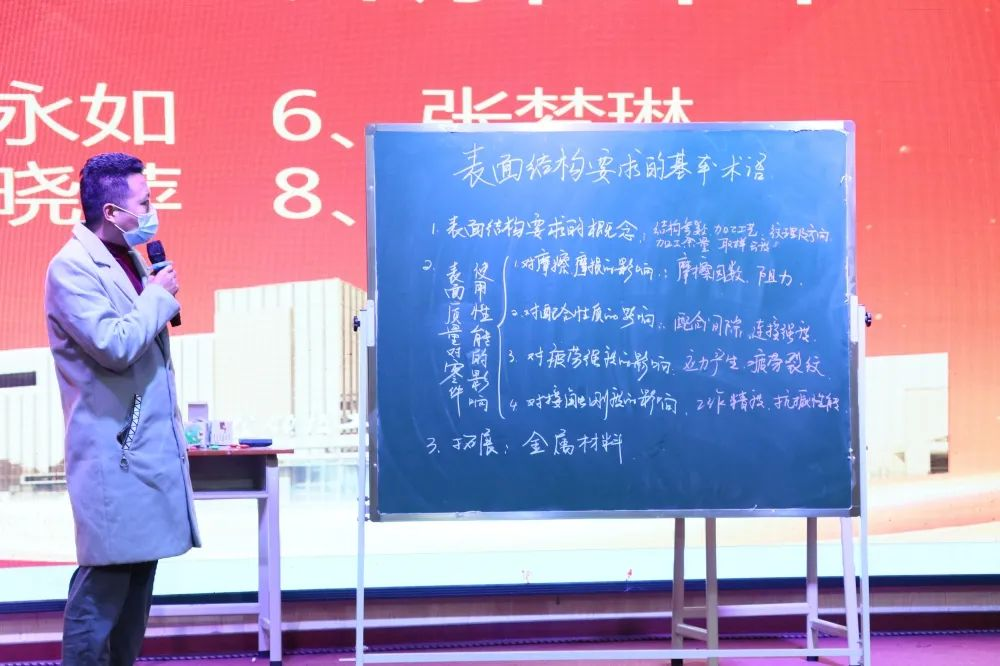 永如 6、张梦琳
晓萍 8、
表面结构要求的基本术语
1. 表面结构要求的概念, 结构参数 加工工艺. 纹理及方向
加工余量 取样
2. 表面质量对零件
使用性能的影响
1. 对摩擦磨损的影响: 摩擦因数. 阻力.
2. 对配合性质的影响: 配合间隙, 连接强度.
3. 对疲劳强度的影响. 应力产生. 疲劳裂纹
4. 对接触刚度的影响. 工作精度. 抗振性能
3. 拓展: 金属材料